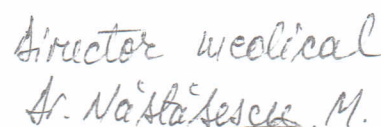 Director medical
Dr. Năstăsescu M.